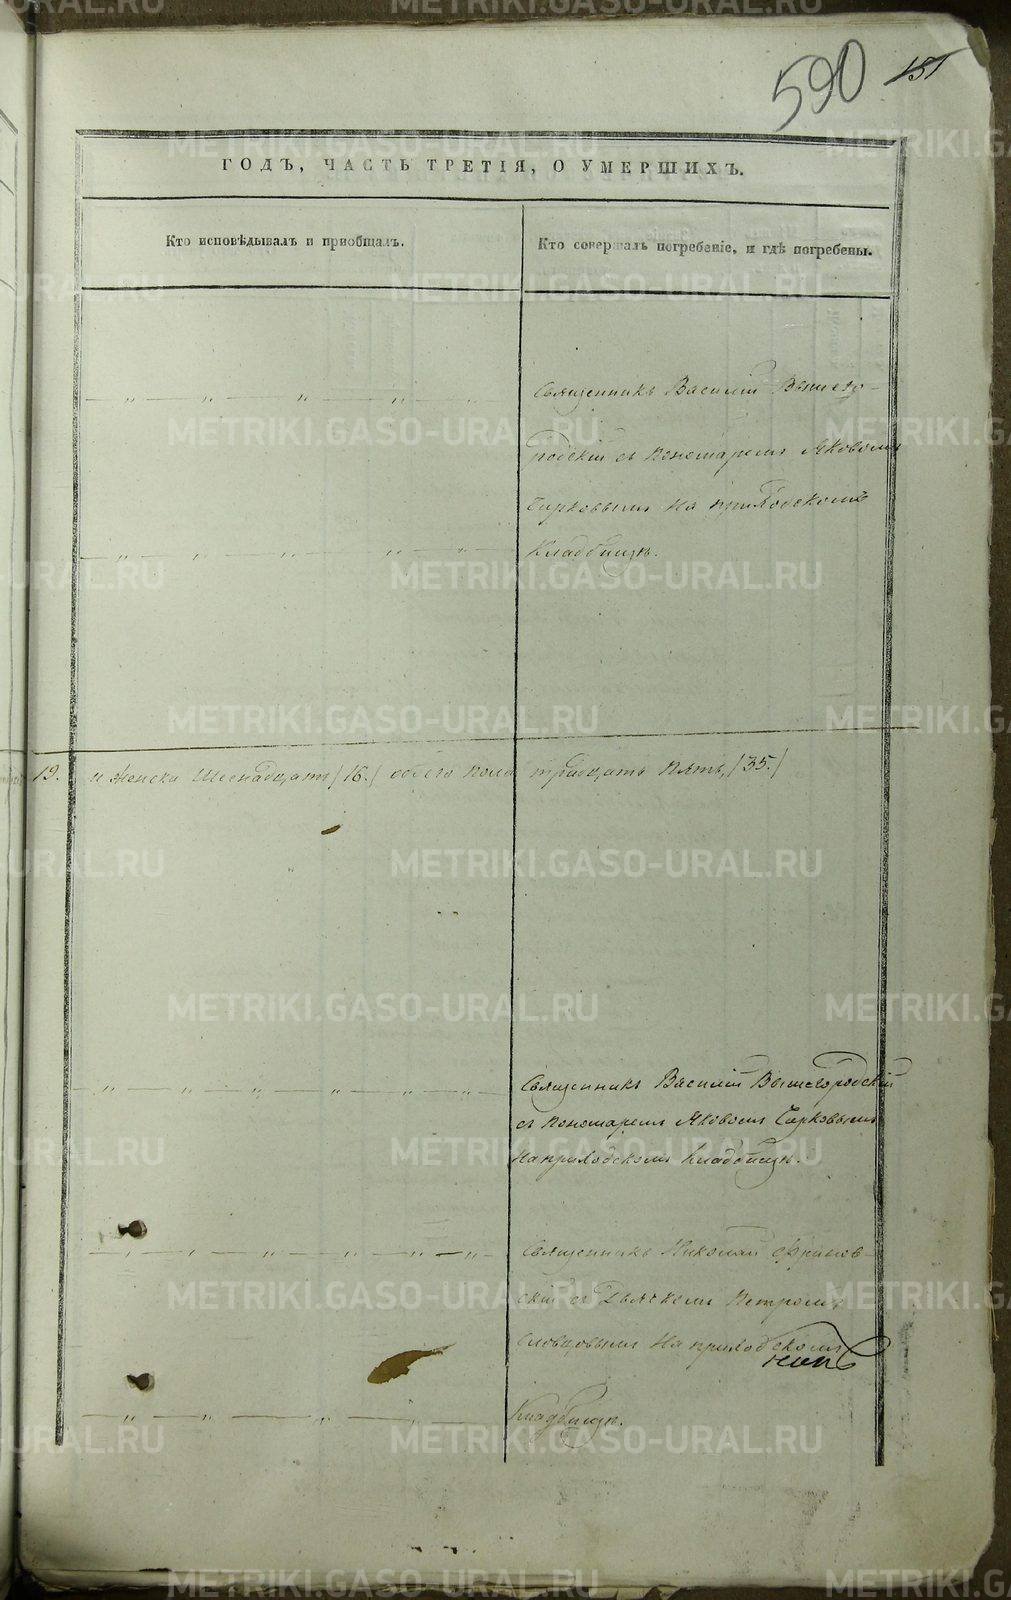 590 151
ГОДЪ, ЧАСТЬ ТРЕТІЯ, О УМЕРШИХЪ.
Кто исповѣдывалъ и пріобщалъ.
Кто совершалъ погребеніе, и гдѣ погребены.
Священникъ Василій Вышего-
родскій съ пономаремъ Яковомъ
на приходскомъ
Кладбищѣ.
19. и женска Шеснадцать /16./ обоего пола тридцать пять, /35./
Священникъ Василій Вышегородскій
съ пономаремъ Яковомъ
на приходскомъ Кладбищѣ.
Священникъ Николай
скій съ Дьячкомъ Петромъ
Словцовымъ на приходскомъ
Кладбищѣ.
METRIKI.GASO-URAL.RU